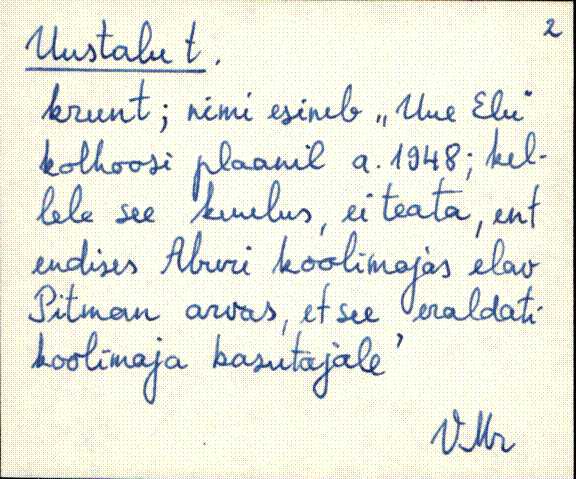 2
Uustalu t.
krunt; nimi esineb „Uue Elu"
kolhoosi plaanil a. 1948; kel-
lele see kuulus, ei teata, ent
endises Aburi koolimajas elav
Pitman arvas, et see eraldati
koolimaja kasutajale’
VMr